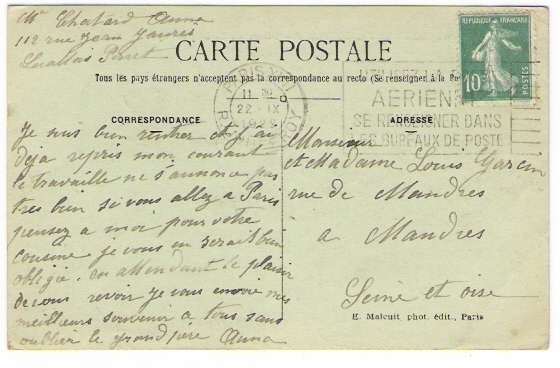 Mme Chatard Anna
112 rue Jean Jaurès
Levallois Perret
CARTE POSTALE
Tous les pays étrangers n'acceptent pas la correspondance au recto (Se renseigner à la
REPUBLIQUE FRANÇAISE
10
PARIS XVII
22 - IX
UTILISEZ LA
AERIENNE
SE RENSEIGNER DANS
LES BUREAUX DE POSTE
CORRESPONDANCE
Je suis bien rentrer et j'ai
déja repris mon courant
le travaille ne s'annonce pas
tres bien si vous allez a Paris
pensez a moi pour votre
cousine je vous en serait bien
obligié. en attendant le plaisir
de vous revoir je vous envoie mes
meilleurs souvenir a tous sans
oublier le grand père Anna
ADRESSE
Monsieur
et Madame Louis Garcin
rue de Mandres
a Mandres
Seine et oise
E. Malcuit, phot. édit., Paris